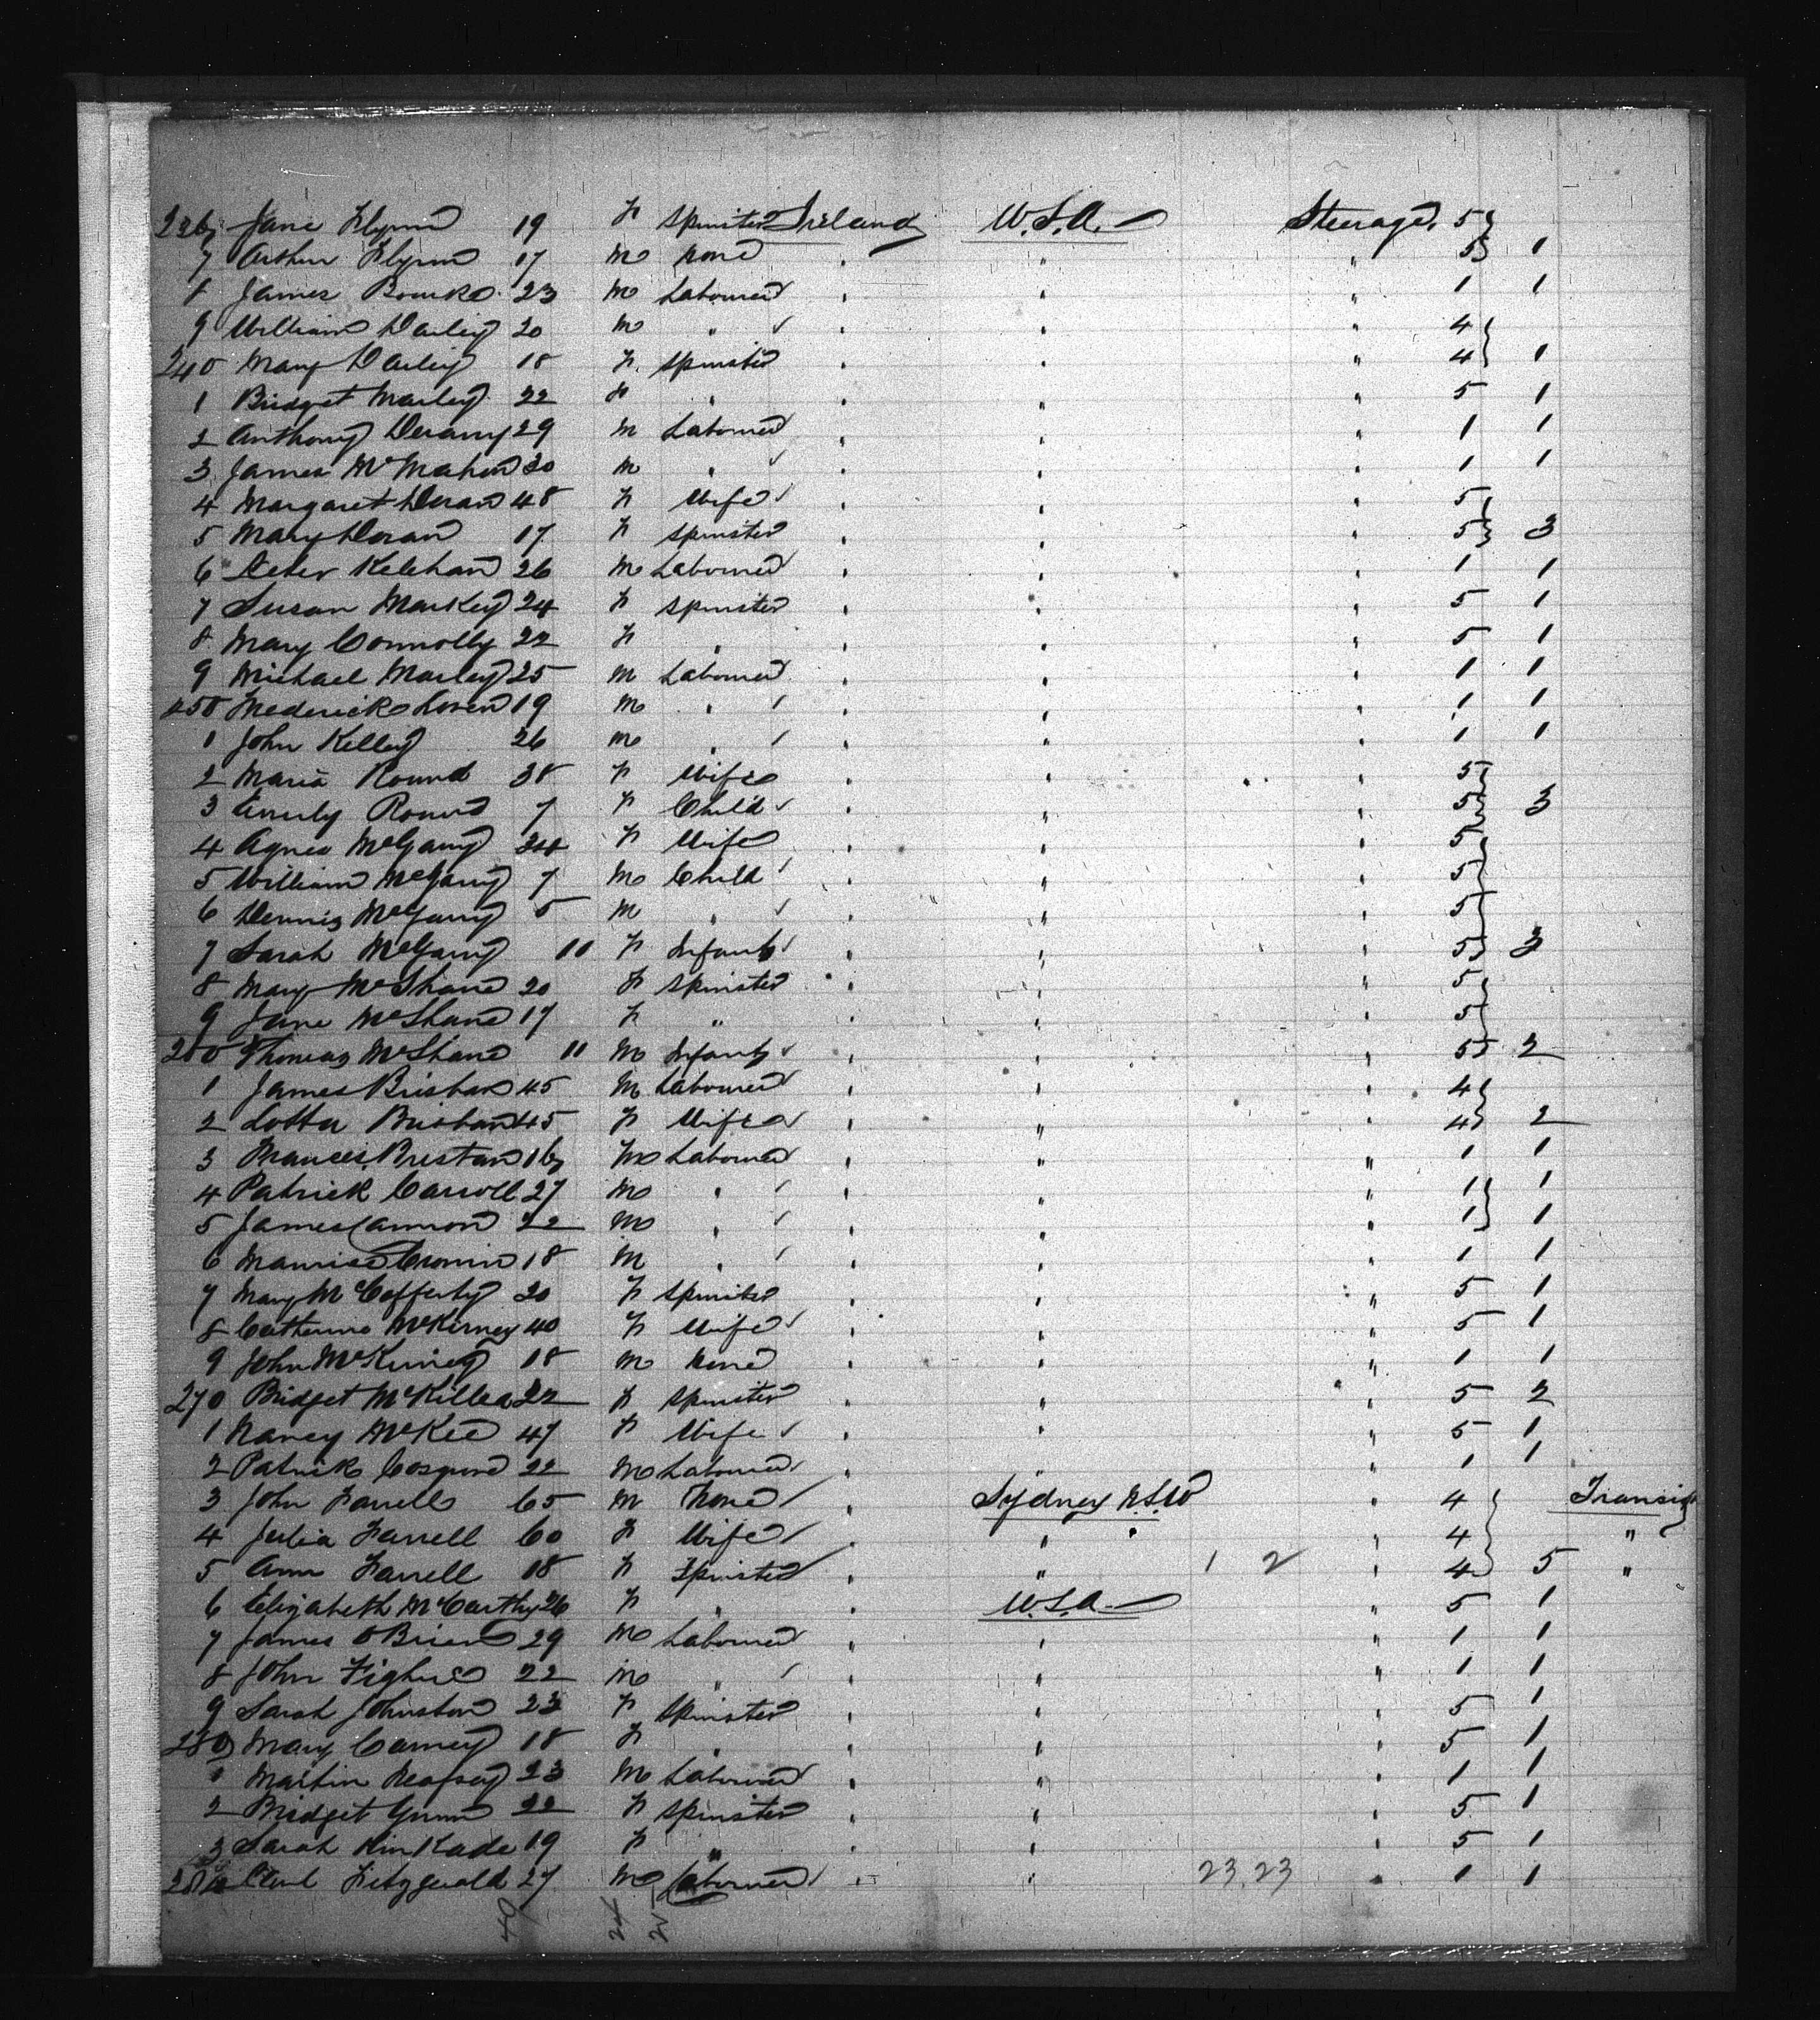 236 Jane Flynn 19 F Spinster Ireland U.S.A. Steerage 5
7 Arthur Flynn 17 M None " " " 5 1
8 James Bourke 23 M Labourer " " " 1 1
9 William Darley 20 M " " " " 4
240 Mary Darley 18 F Spinster " " 4 1
1 Bridget Marley 22 F " " " " 5 1
2 Anthony Devany 29 M Labourer " " " 1 1
3 James McMahon 30 M " " " " 1 1
4 Margaret Doran 48 F Wife " " " 5
5 Mary Doran 17 F Spinster " " " 5 3
6 Peter Kelehan 26 M Labourer " " " 1 1
7 Susan Markey 24 F Spinster " " " 5 1
8 Mary Connolly 22 F " " " " 5 1
9 Michael Marley 25 M Labourer " " " 1 1
250 Frederick Loven 19 M " " " " 1 1
1 John Kelley 26 M " " " " 1 1
2 Maria Round 38 F Wife " " " 5
3 Emily Round 7 F Child " " " 5 3
4 Agnes McGarry 34 F Wife " " " 5
5 William McGarry 7 M Child " " " 5
6 Dennis McGarry 5 M " " " " 5
7 Sarah McGarry 11 F Infant " " " 5 3
8 Mary McShane 20 F Spinster " " " 5
9 Jane McShane 17 F " " " " 5
260 Thomas McShane 11 M Infant " " " 5 2
1 James Brisban 45 M Labourer " " " 4
2 Lotta Brisban 45 F Wife " " " 4 2
3 Frances Prestan 16 M Labourer " " " 1 1
4 Patrick Carroll 27 M " " " " 1 1
5 James Cannon 22 M " " " " 1 1
6 Maurice Cronin 18 M " " " " 1 1
7 Mary McCafferty 20 F Spinster " " " 5 1
8 Catherine McKerney 40 F Wife " " " 5 1
9 John McKerney 18 M None " " " 1 1
270 Bridget McKillea 22 F Spinster " " " 5 2
1 Nancy McKee 47 F Wife " " " 5 1
2 Patrick Cosgrove 22 M Labourer " " " 1 1
3 John Farrell 65 M None " Sydney N.S.W " 4 Transit
4 Julia Farrell 60 F Wife " " " 4 "
5 Ann Farrell 18 F Spinster " " 1 2 " 4 5 "
6 Elizabeth McCarthy 26 F " " U.S.A. " 5 1
7 James OBrien 29 M Labourer " " " 1 1
8 John 22 M " " " " 1 1
9 Sarah Johnston 23 F Spinster " " " 5 1
280 Mary Carney 18 F " " " " 5 1
1 Martin 23 M Labourer " " " 1 1
2 Bridget 22 F Spinster " " " 5 1
3 Sarah Kinkade 19 F " " " " 5 1
284 Fitzgerald 27 M Labourer " " 23.23 " 1 1
49 24 25